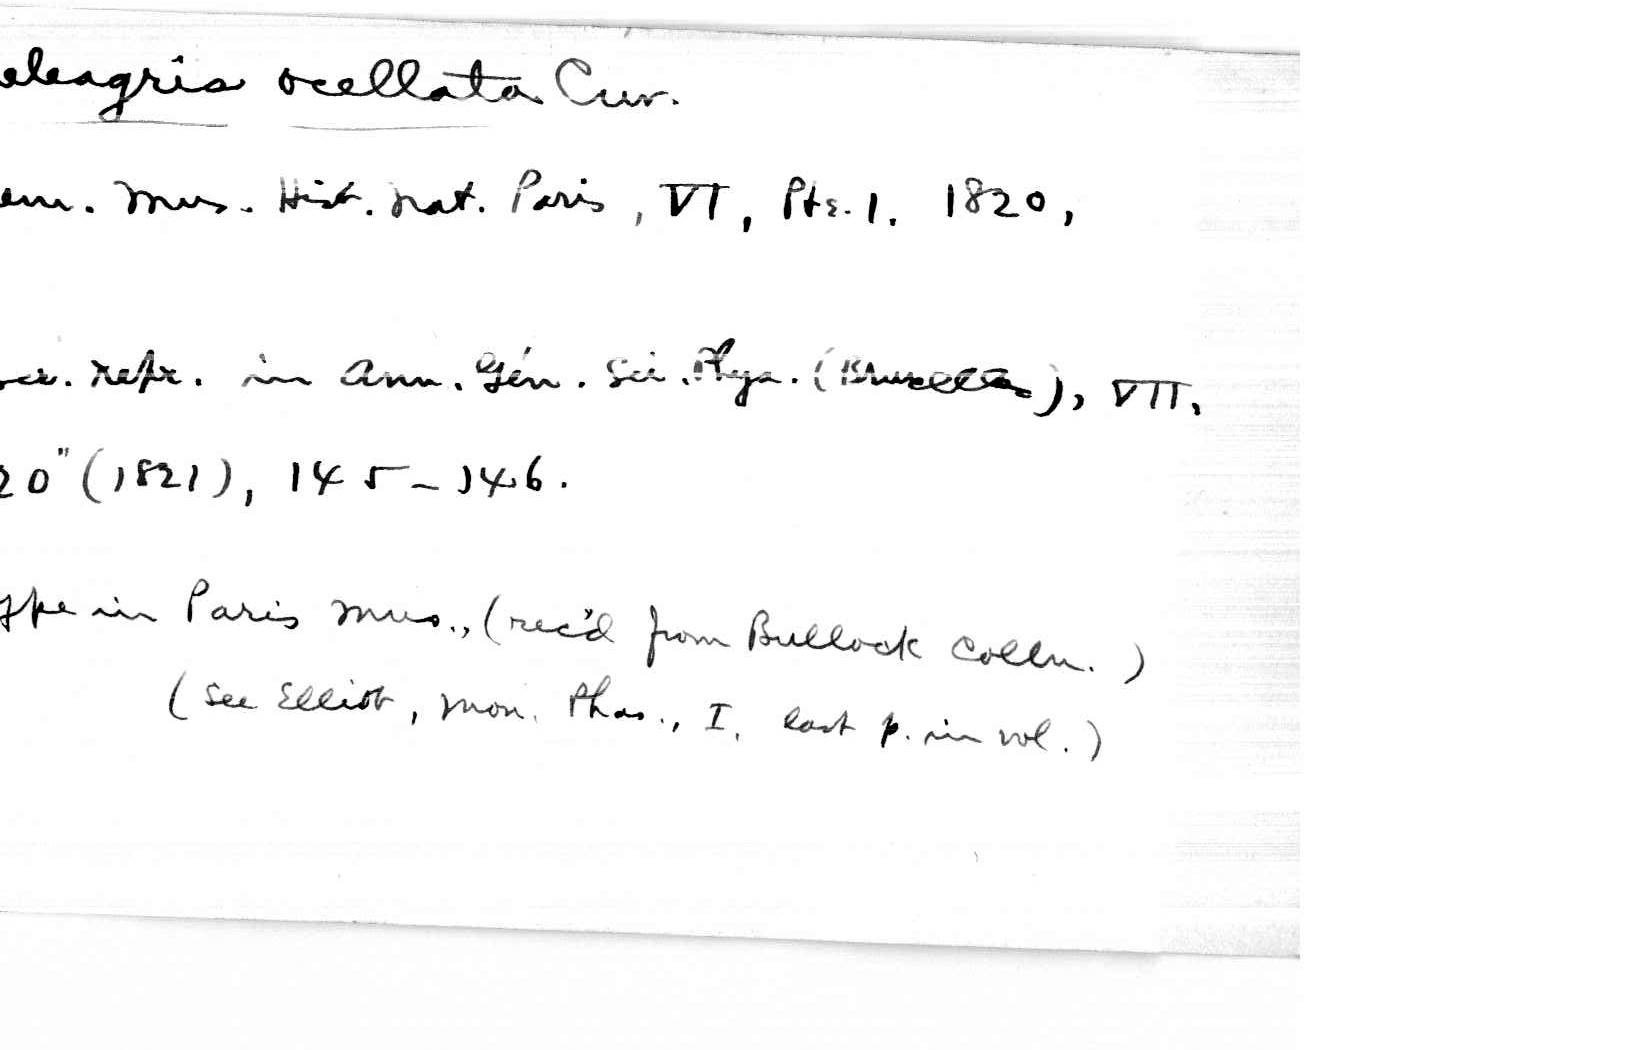 eleagris ocellata Cuv.
em. Mus. Hist. Nat. Paris, VI, Pts. 1. 1820,
repr. in Ann. Gén. Sci. Phys. (Bruxelles), VII,
20" (1821), 145-146.
ype in Paris Mus., (rec'd from Bullock Colln.)
(See Elliot, Mon. Phas., I, last p. in vol.)